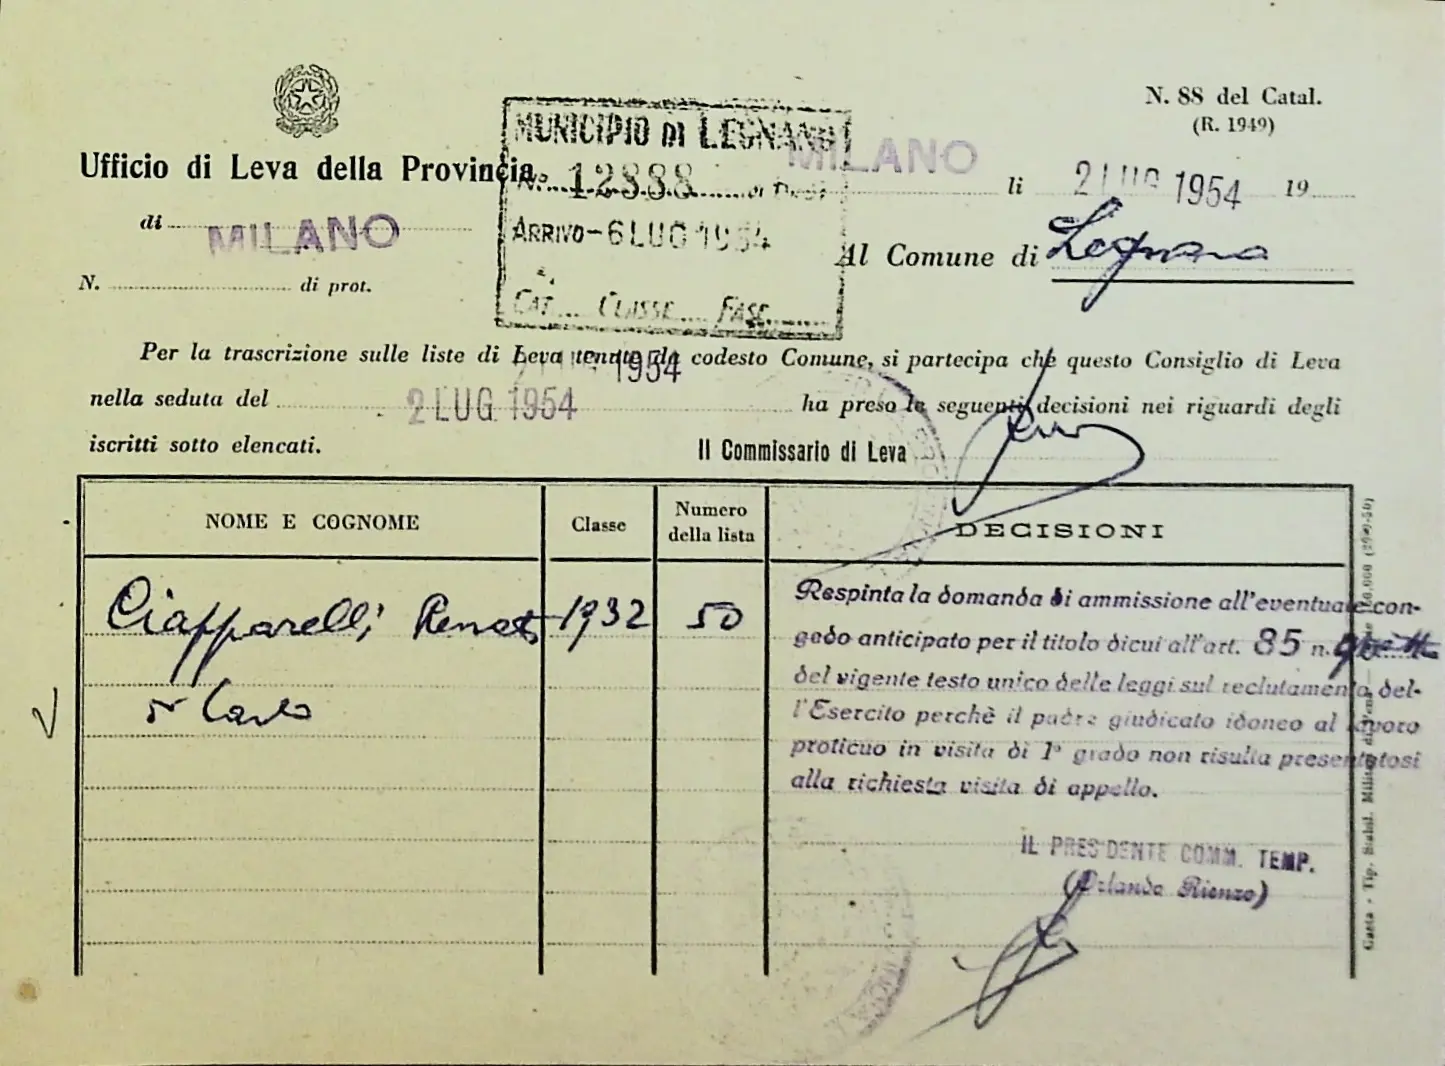 N. 88 del Catal.
(R. 1949)
MUNICIPIO DI LEGNANO
Ufficio di Leva della Provincia
N.º 12888
MILANO li 2 LUG 1954 19
di MILANO
ARRIVO - 6 LUG 1954
Al Comune di Legnano
N. di prot.
CAT. CLASSE FASC.
Per la trascrizione sulle liste di Leva tenute da codesto Comune, si partecipa che questo Consiglio di Leva
1954
nella seduta del 2 LUG 1954 ha preso le seguenti decisioni nei riguardi degli
iscritti sotto elencati.
Il Commissario di Leva
NOME E COGNOME Classe Numero della lista DECISIONI
Ciapparelli Renato 1932 50
di Carlo
Respinta la domanda di ammissione all'eventuale con-
gedo anticipato per il titolo dicui all'art. 85 n.
del vigente testo unico delle leggi sul reclutamento del-
l'Esercito perchè il padre giudicato idoneo al lavoro
proficuo in visita di 1º grado non risulta presentatosi
alla richiesta visita di appello.
IL PRESIDENTE COMM. TEMP.
(Orlando Rienzo)
Gaeta - Tip. Stabil. Militare di Pena